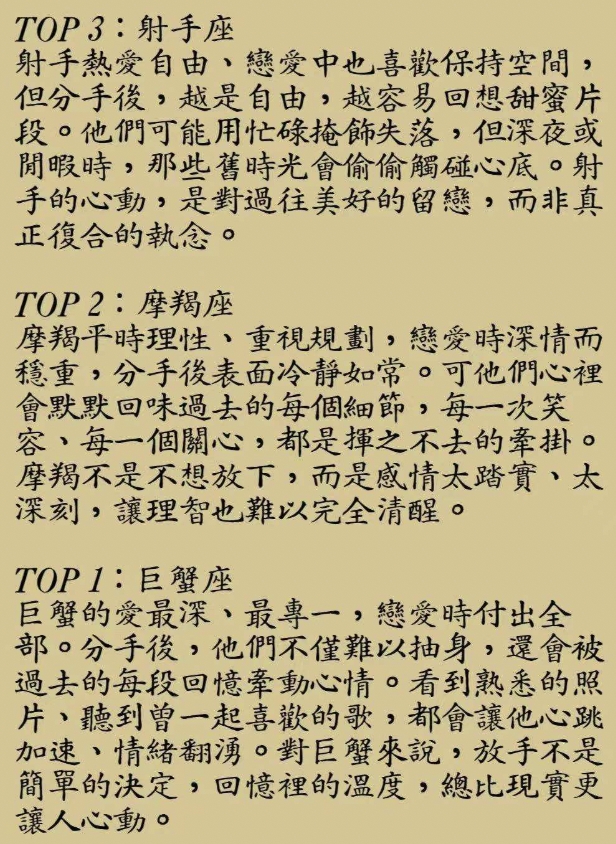 TOP 3：射手座
射手熱愛自由、戀愛中也喜歡保持空間，
但分手後，越是自由，越容易回想甜蜜片
段。他們可能用忙碌掩飾失落，但深夜或
閒暇時，那些舊時光會偷偷觸碰心底。射
手的心動，是對過往美好的留戀，而非真
正復合的執念。
TOP 2：摩羯座
摩羯平時理性、重視規劃，戀愛時深情而
穩重，分手後表面冷靜如常。可他們心裡
會默默回味過去的每個細節，每一次笑
容、每一個關心，都是揮之不去的牽掛。
摩羯不是不想放下，而是感情太踏實、太
深刻，讓理智也難以完全清醒。
TOP 1：巨蟹座
巨蟹的愛最深、最專一，戀愛時付出全
部。分手後，他們不僅難以抽身，還會被
過去的每段回憶牽動心情。看到熟悉的照
片、聽到曾一起喜歡的歌，都會讓他心跳
加速、情緒翻湧。對巨蟹來說，放手不是
簡單的決定，回憶裡的溫度，總比現實更
讓人心動。